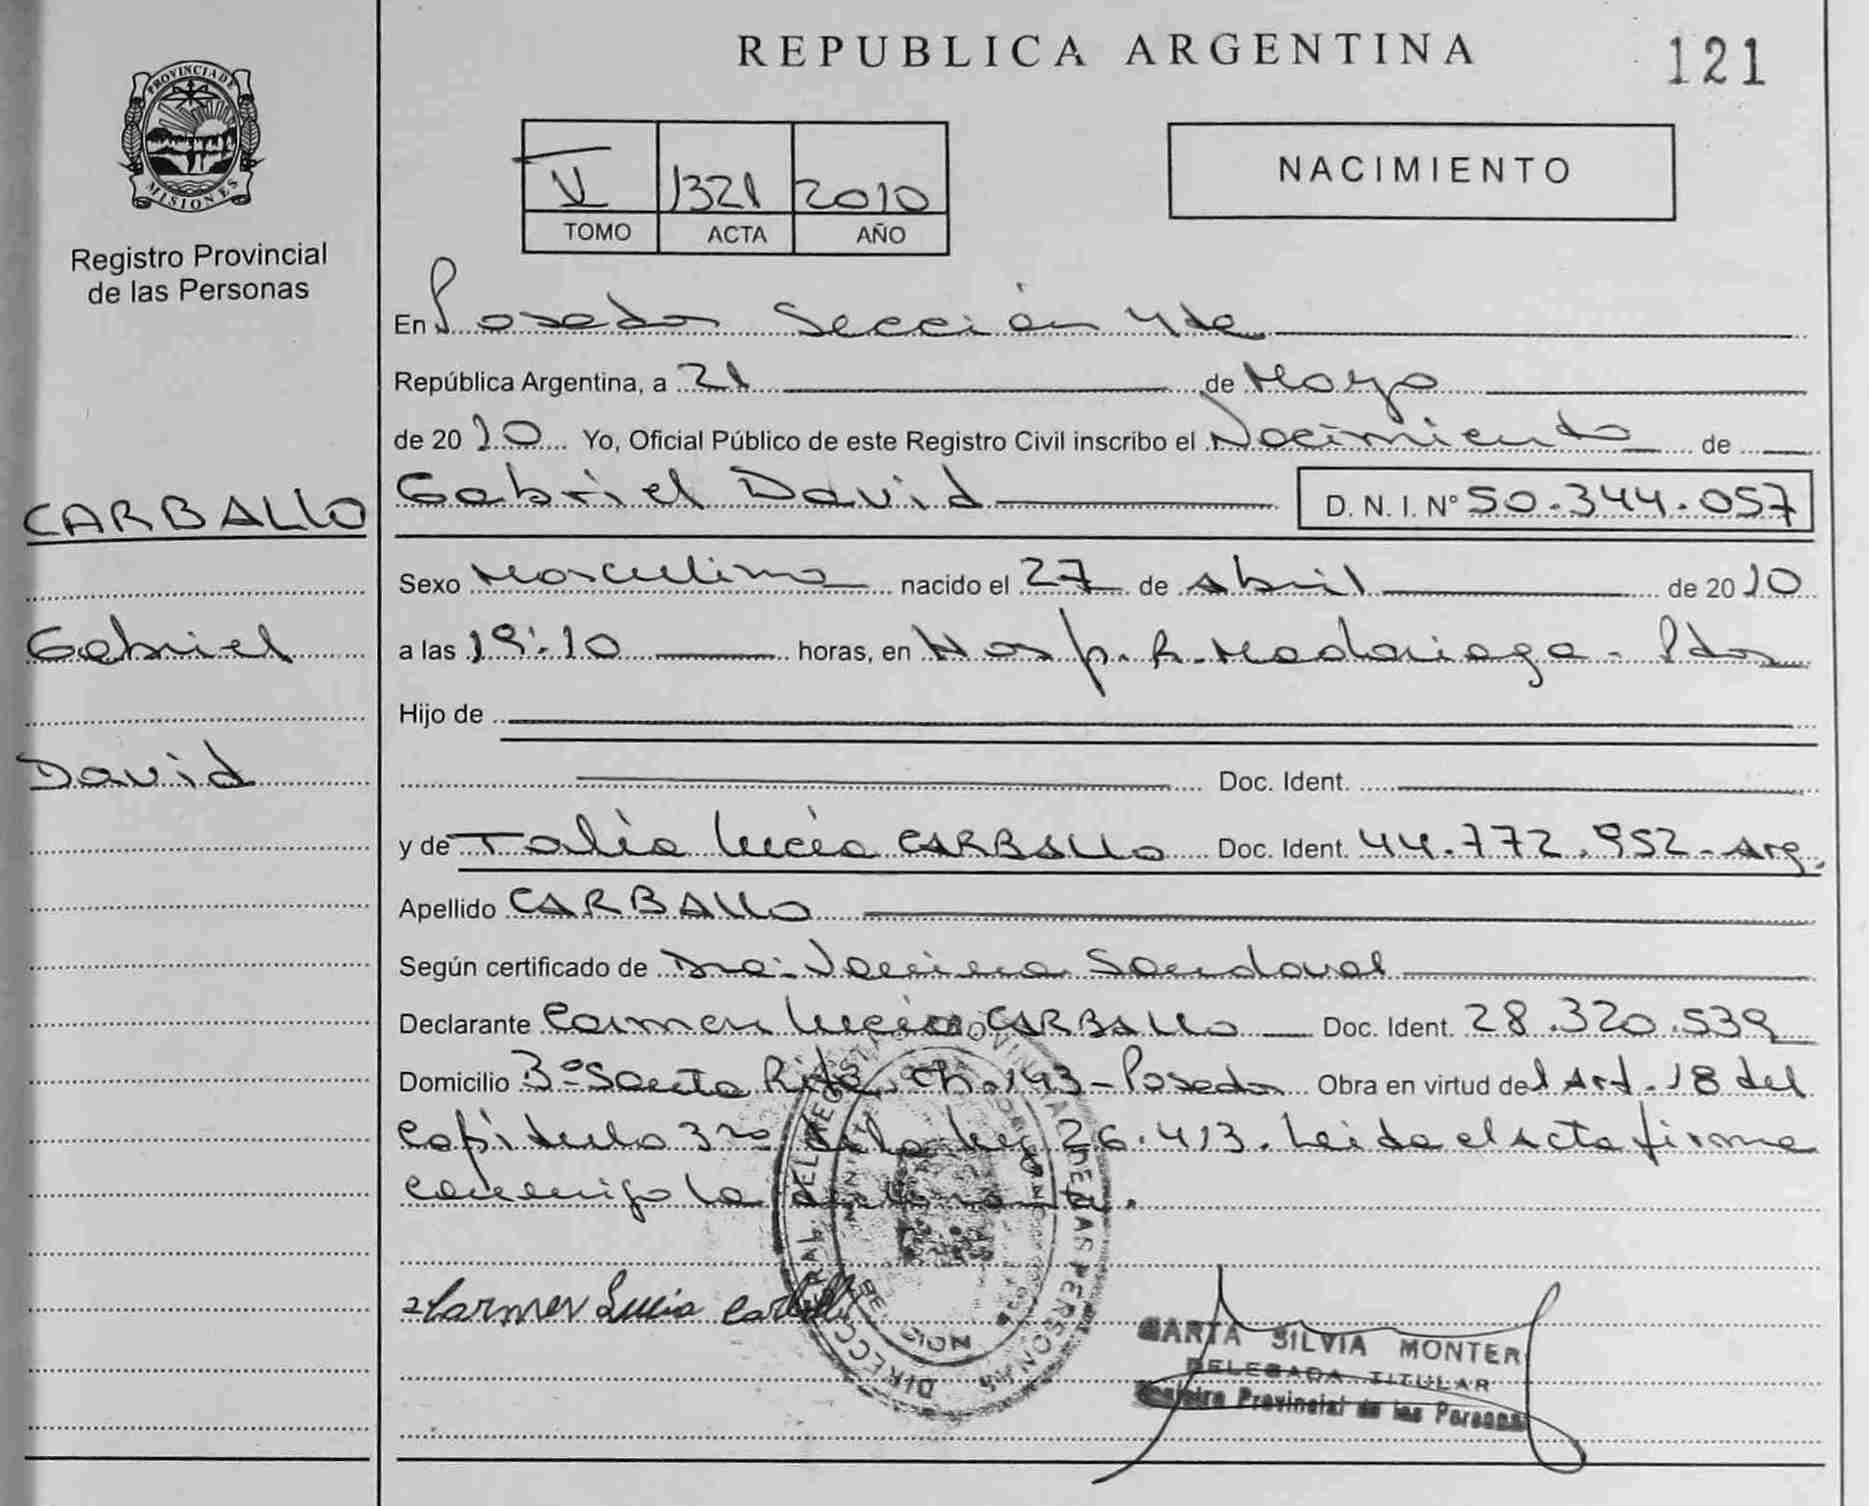 PROVINCIA DE
MISIONES
Registro Provincial
de las Personas
CARBALLO
Gabriel
David
REPUBLICA ARGENTINA
121
V 1321 2010
TOMO ACTA AÑO
NACIMIENTO
En Posadas Sección 4ta
República Argentina, a 21 de Mayo
de 2010 Yo, Oficial Público de este Registro Civil inscribo el Nacimiento de
Gabriel David D. N. I. Nº 50.344.057
Sexo Masculino nacido el 27 de Abril de 2010
a las 19:10 horas, en Hosp. R. Madariaga - Pdas
Hijo de
Doc. Ident.
y de Talia Lucía CARBALLO Doc. Ident. 44.772.952 - Arg.
Apellido CARBALLO
Según certificado de Dra. Sandoval
Declarante Carmen Lucía CARBALLO Doc. Ident. 28.320.539
Domicilio Bº Santa Rita Ch. 143 - Posadas Obra en virtud del Art. 18 del
Capítulo 3ro de la Ley 26.413. Leida el Acta firma
conmigo la declarante.
Carmen Lucia Carballo
DIRECCION GENERAL DEL REGISTRO PROVINCIAL DE LAS PERSONAS
MARTA SILVIA MONTER
DELEGADA TITULAR
Registro Provincial de las Personas